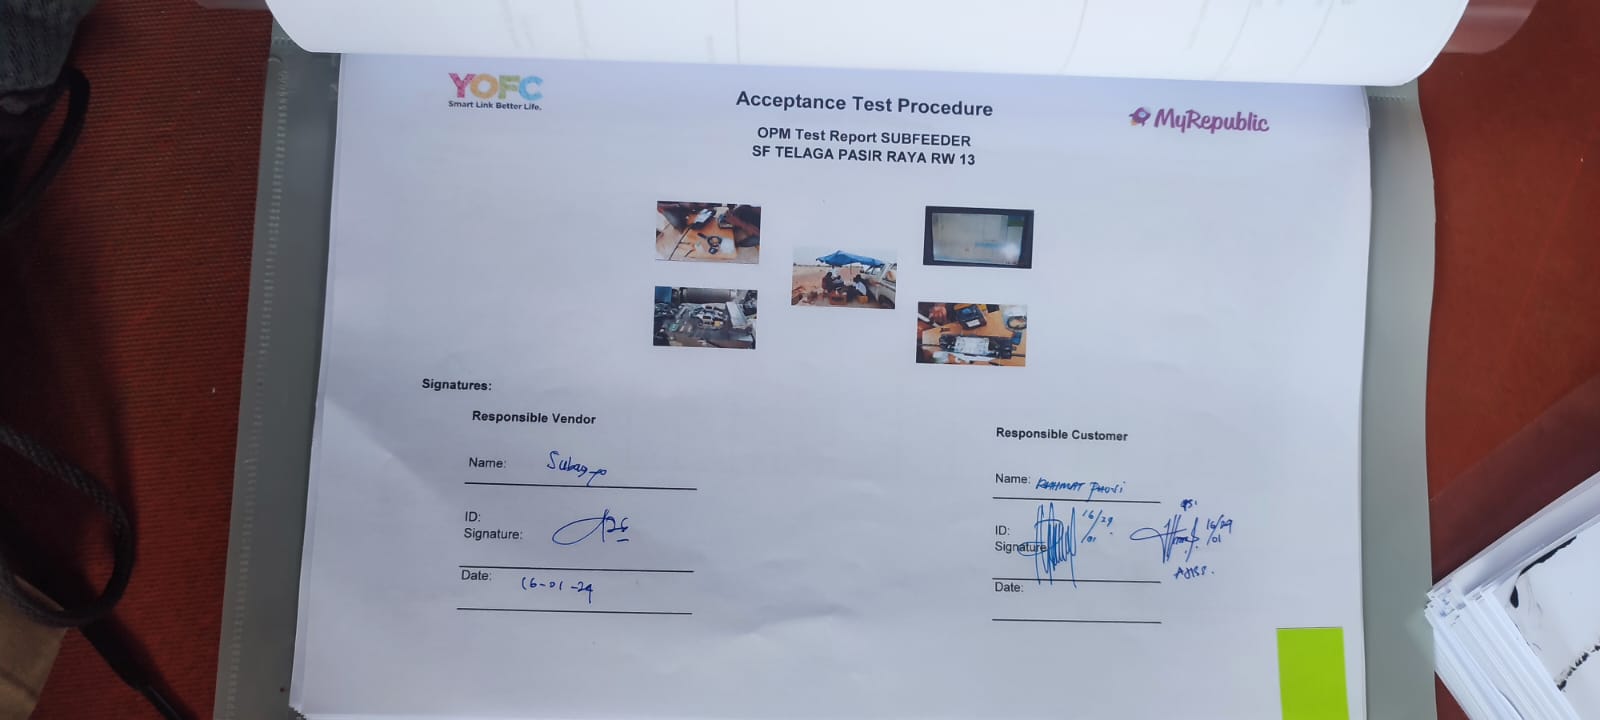 YOFC
Smart Link Better Life.
Acceptance Test Procedure
MyRepublic
OPM Test Report SUBFEEDER
SF TELAGA PASIR RAYA RW 13
Signatures:
Responsible Vendor
Name: Subagyo
ID:
Signature:
Date: 16-01-24
Responsible Customer
Name: RAHMAT
ID:
Signature
16/29
/01
16/29
/01
Date: